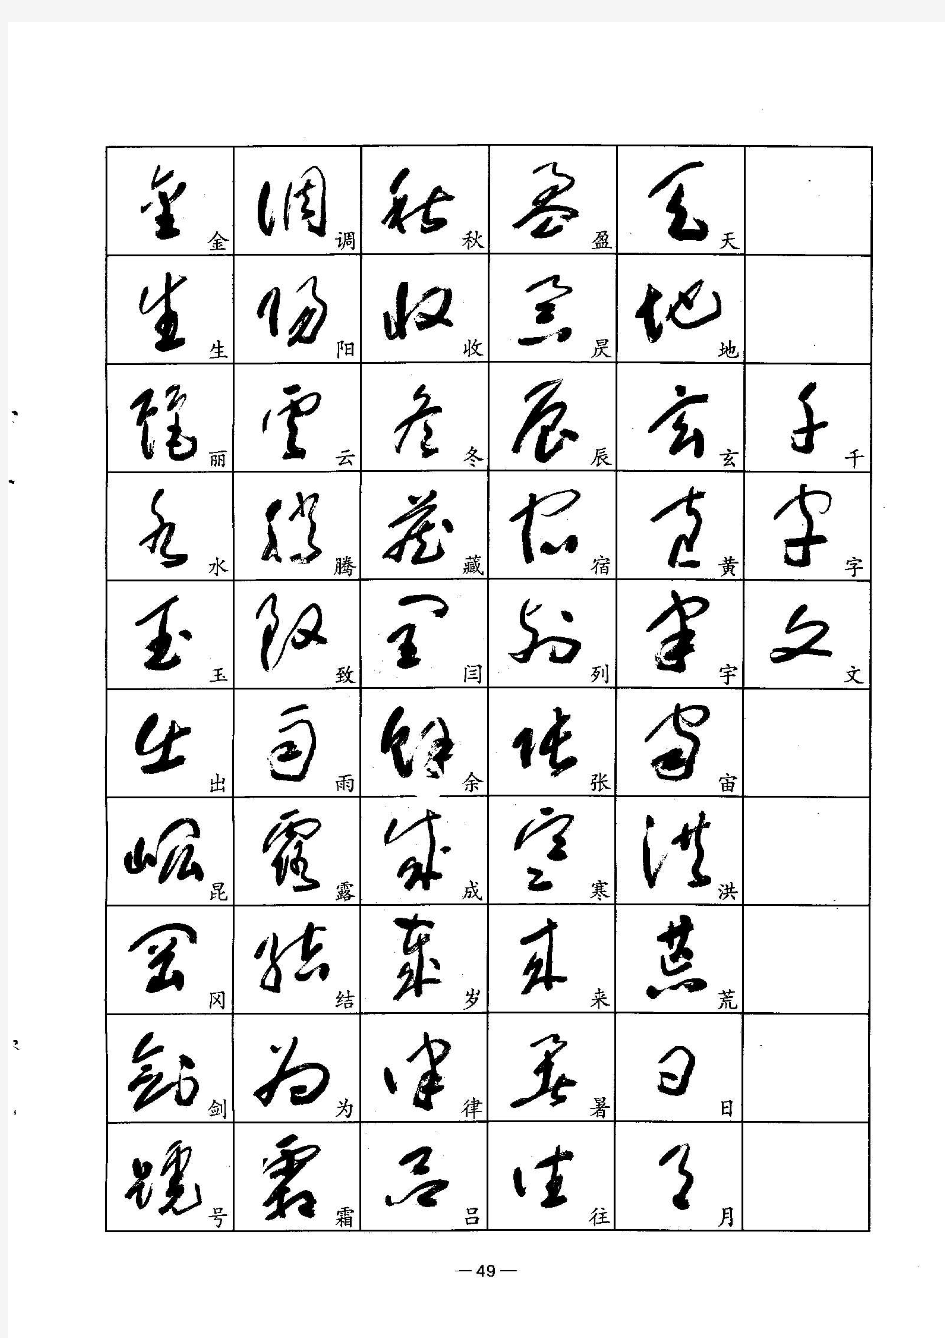 千字文
天地玄黄宇宙洪荒日月
盈昃辰宿列张寒来暑往
秋收冬藏闰余成岁律吕
调阳云腾致雨露结为霜
金生丽水玉出昆冈剑号
—49—